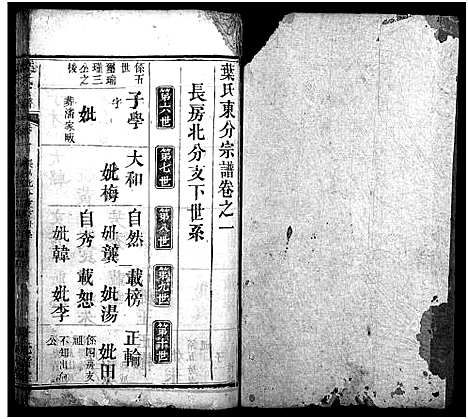 葉氏東分宗譜卷之一
長房北分支下世系
第六世
第七世
第八世
第九世
第十世
子學
大和
自然
載榜
正輪
字
妣
妣梅
妣龔
妣湯
妣田
葬潘家畈
自秀
載恕
妣韓
妣李
係五
世
璽瑜
瑾三
公之
後
係四房支
不知出何
公